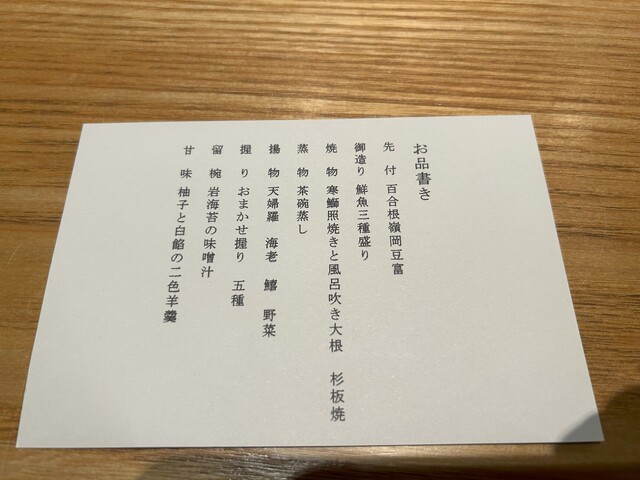 お品書き
先 付 百合根嶺岡豆富
御造り 鮮魚三種盛り
焼 物 寒鰤照焼きと風呂吹き大根 杉板焼
蒸 物 茶碗蒸し
揚 物 天婦羅 海老 鱚 野菜
握 り おまかせ握り 五種
留 椀 岩海苔の味噌汁
甘 味 柚子と白餡の二色羊羹